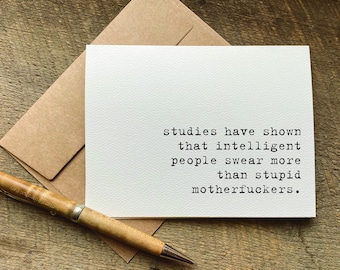 studies have shown
that intelligent
people swear more
than stupid
motherfuckers.